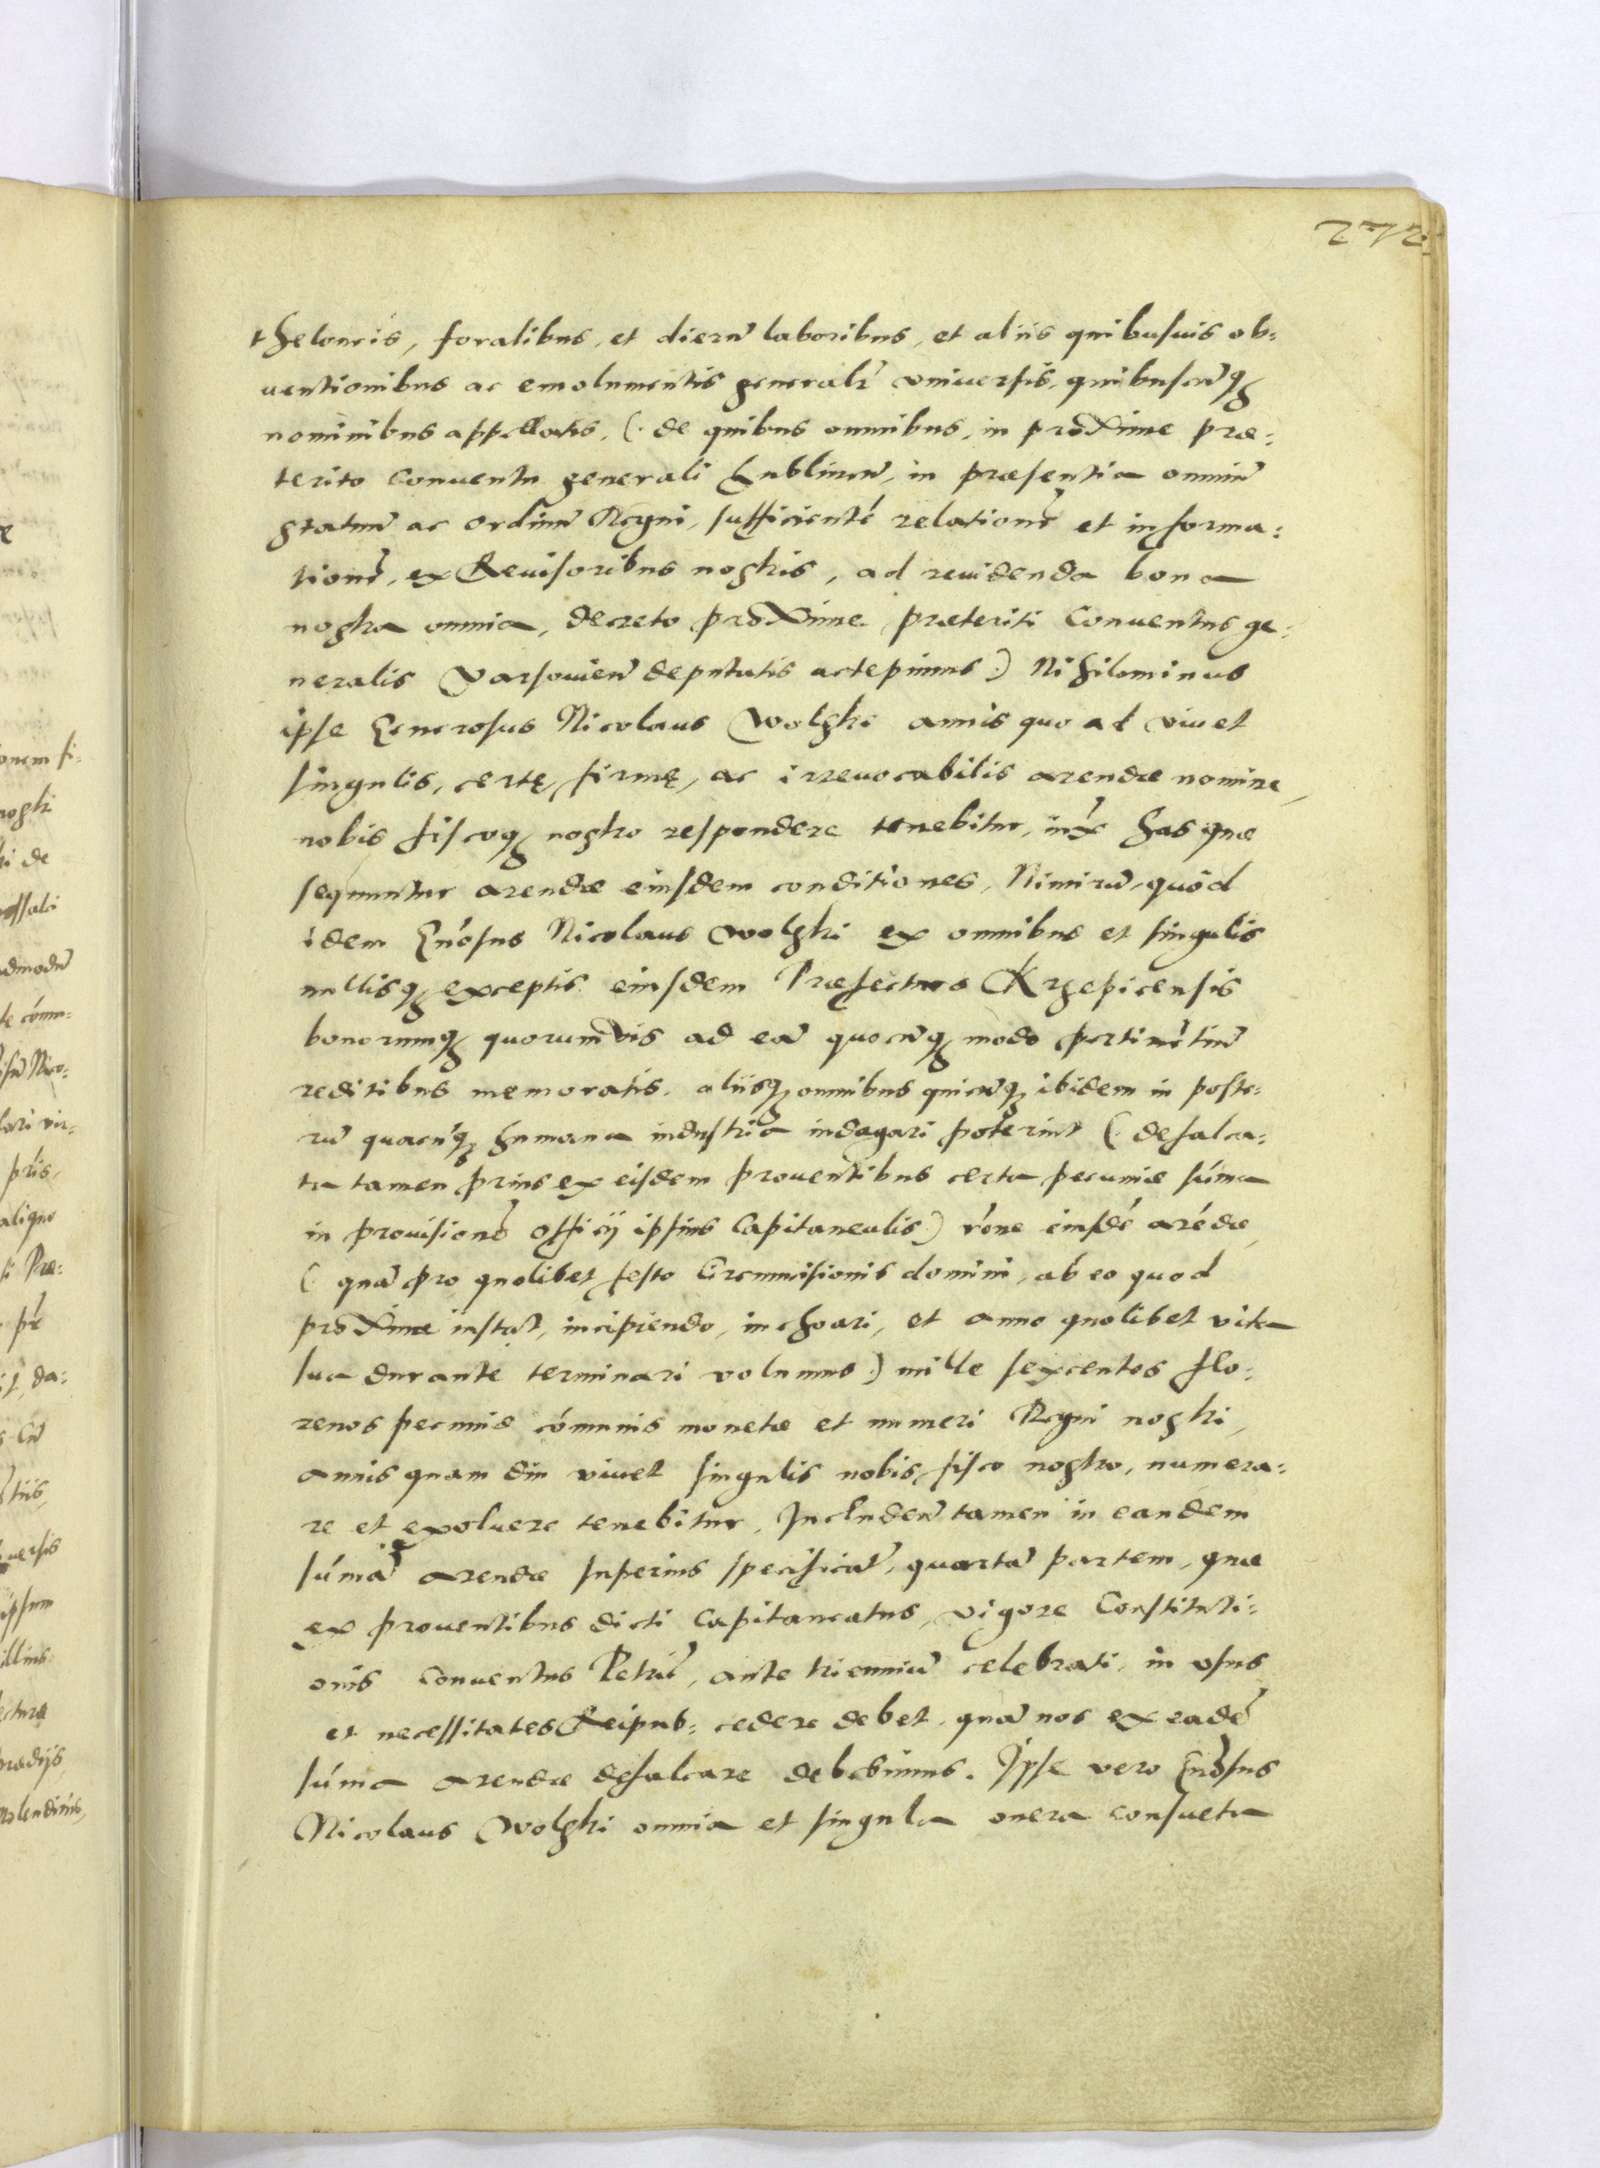 272
theloneis, foralibus, et dierũ laboribus, et aliis quibusuis ob:
uentionibus ac emolumentis generalr̃ vniuersis, quibuscũq;
nominibus appellatis, (. de quibus omnibus, in proxime præ:
terito conuentu generali Lublineñ, in præsentia omniũ
statuũ ac ordinũ Regni, sufficientẽ relationẽ et informa:
tionẽ, ex Reuisoribus nostris, ad reuidenda bona
nostra omnia, decreto proxime præteriti conuentus ge:
neralis Varsouieñ deputatis accepimus.) Nihilominus
ipse Generosus Nicolaus Wolski annis quo ad viuet
singulis, certę, firmę, ac irreuocabilis arendæ nomine,
nobis fiscoq; nostro respondere tenebitur, iux̃ has quæ
sequuntur arendæ eiusdem conditiones, Nimirũ, quòd
idem Gñosus Nicolaus Wolski ex omnibus et singulis
nullisq; exceptis eiusdem Præfecturæ Krzepicensis
bonorumq; quorumuis ad eã quocũq; modo pertinẽtiũ
reditibus memoratis, aliisq; omnibus quicũq; ibidem in poste:
rũ quacũq; humana industria indagari poterint (. defalca:
ta tamen prius ex eisdem prouentibus certa pecuniæ sũma
in prouisionẽ officij ipsius Capitanealis.) rõne eiusdẽ arẽdæ
(. quã pro quolibet festo Circumcisionis domini, ab eo quod
proxime instat, incipiendo, inchoari, et anno quolibet vita
sua durante terminari volumus.) mille sexcentos flo:
renos pecuniæ cõmunis monetæ et numeri Regni nostri,
annis quam diu viuet singulis nobis, fisco nostro, numera:
re et exoluere tenebitur. Includeñ tamen in eandem
sũmã arendæ superius specificatã, quartã partem, quæ
ex prouentibus dicti Capitaneatus, vigore Constituti:
onis conuentus Petric̃, ante trienniũ celebrati, in vsus
et necessitates Reipub: cedere debet, quã nos ex eadẽ
sũma arendæ defalcare debebimus. Ipse vero Gñosus
Nicolaus Wolski omnia et singula onera consueta